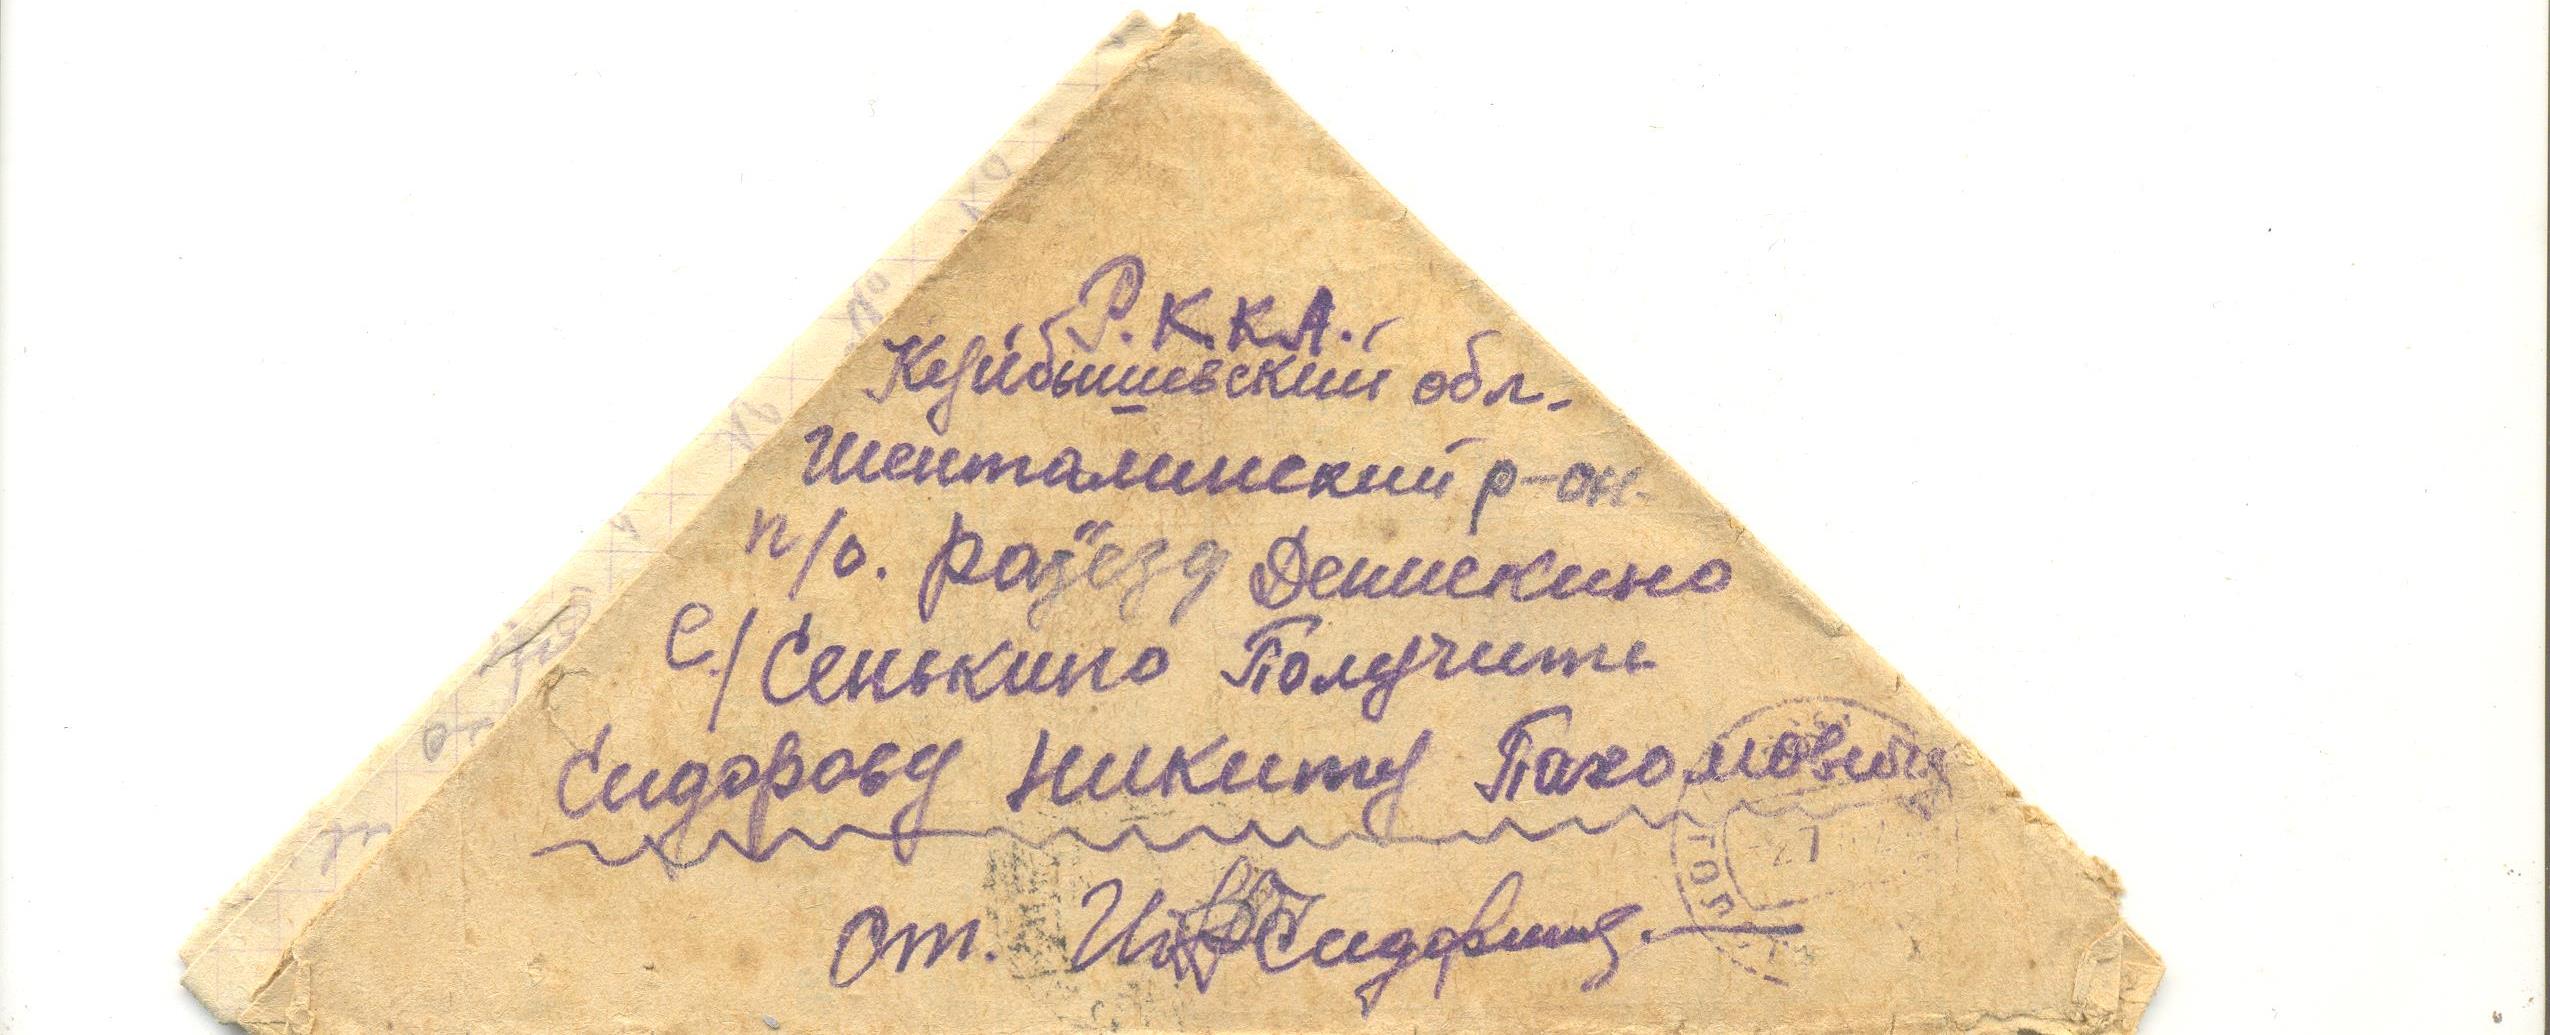 Р.К.К.А.
Куйбышевский обл.
Шенталинский р-он.
п/о. разъезд Денискино
с/Сенькино Получить
Сидорову Никиту Пахомовичу
от.